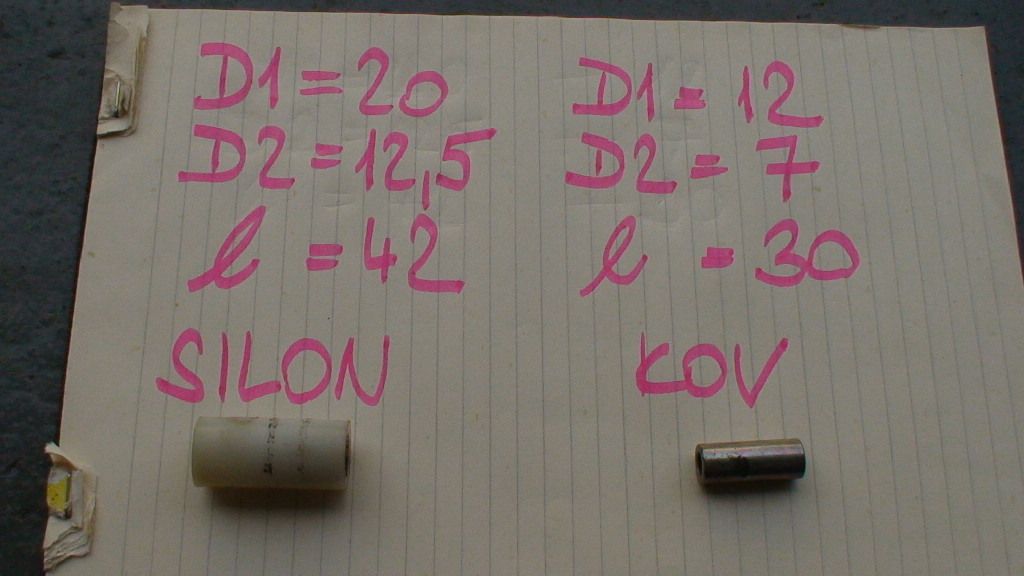 D1 = 20
D2 = 12,5
l = 42
SILON
D1 = 12
D2 = 7
l = 30
KOV